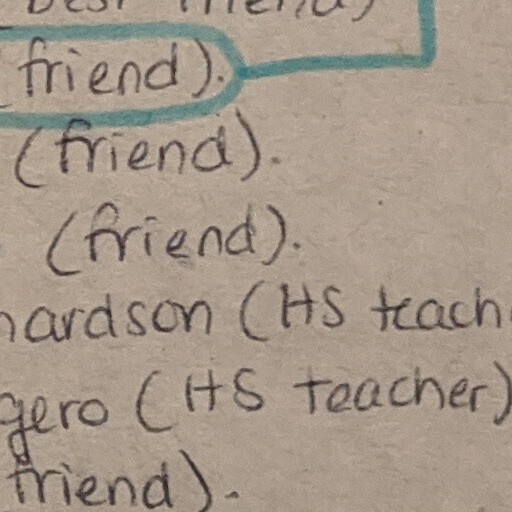 friend).
(friend).
(friend).
hardson (HS teach
gero (HS teacher)
friend).